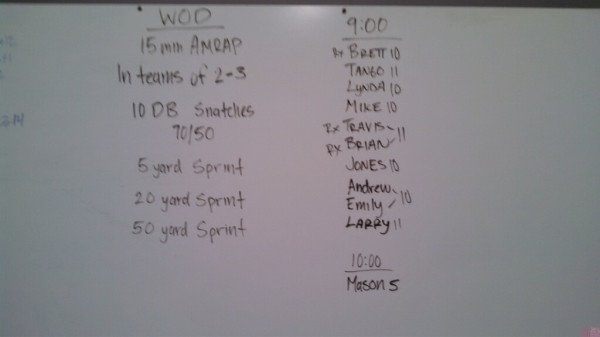 WOD
15 min AMRAP
In teams of 2-3
10 DB Snatches
70/50
5 yard Sprint
20 yard Sprint
50 yard Sprint
9:00
Rx BRETT 10
TANGO 11
LYNDA 10
MIKE 10
Rx TRAVIS
Rx BRIAN 11
JONES 10
Andrew
Emily 10
LARRY 11
10:00
Mason 5